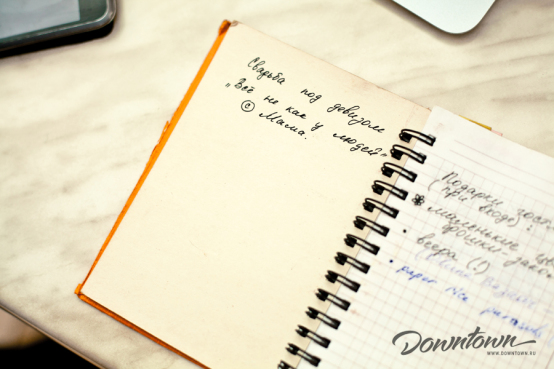 Свадьба под девизом
„Всё не как у людей"
© Мама.
Подарки
(при входе):
маленькие
веера (!)
paper rice
Downtown
WWW.DOWNTOWN.RU